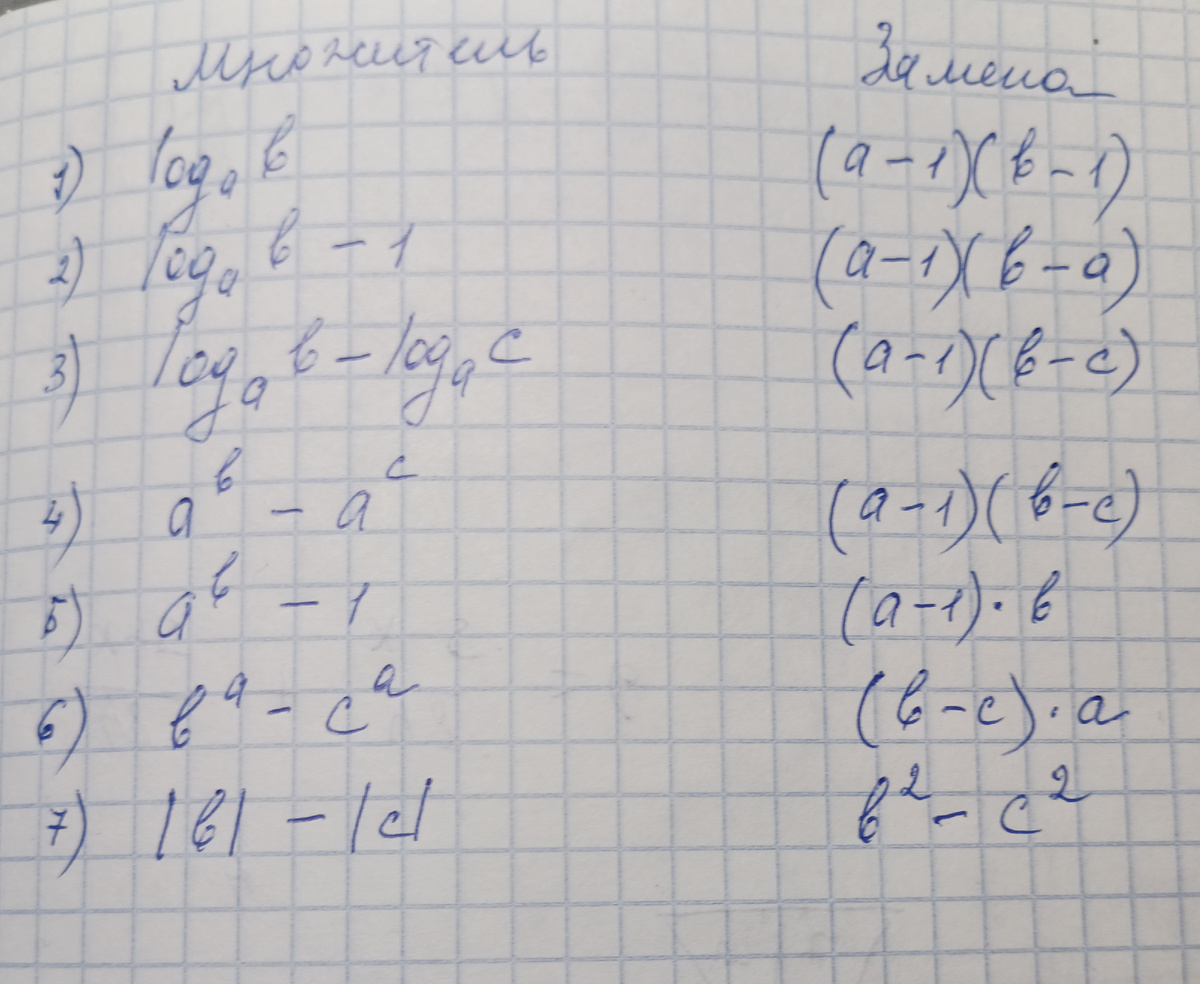 Множитель Замена
1) logₐ b (a-1)(b-1)
2) logₐ b - 1 (a-1)(b-a)
3) logₐ b - logₐ c (a-1)(b-c)
4) aᵇ - aᶜ (a-1)(b-c)
5) aᵇ - 1 (a-1)·b
6) bᵃ - cᵃ (b-c)·a
7) |b| - |c| b² - c²